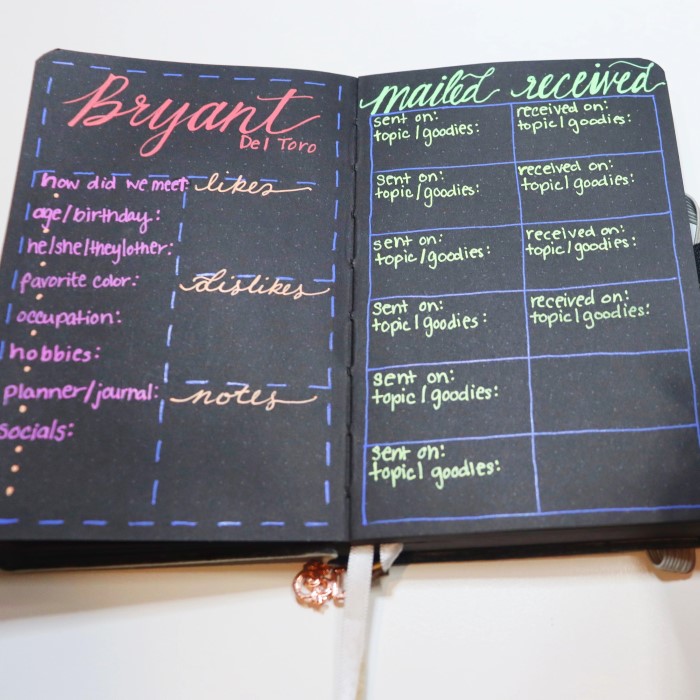 Bryant
Del Toro
how did we meet:
likes
age/birthday:
he/she/they/other:
favorite color:
dislikes
occupation:
hobbies:
planner/journal:
notes
socials:
mailed received
sent on:
topic/goodies:
received on:
topic/goodies:
sent on:
topic/goodies:
received on:
topic/goodies:
sent on:
topic/goodies:
received on:
topic/goodies:
sent on:
topic/goodies:
received on:
topic/goodies:
sent on:
topic/goodies:
sent on:
topic/goodies: